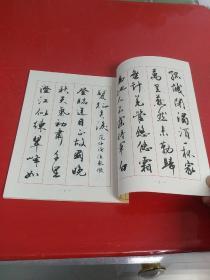 孤城閉濁酒一杯家
萬里燕然未勒歸
無計羌管悠悠霜
滿地人不寐將軍白
髮征夫淚 范仲淹漁家傲
登臨送目正故國晚
秋天氣初肅千里
澄江似練翠峰如